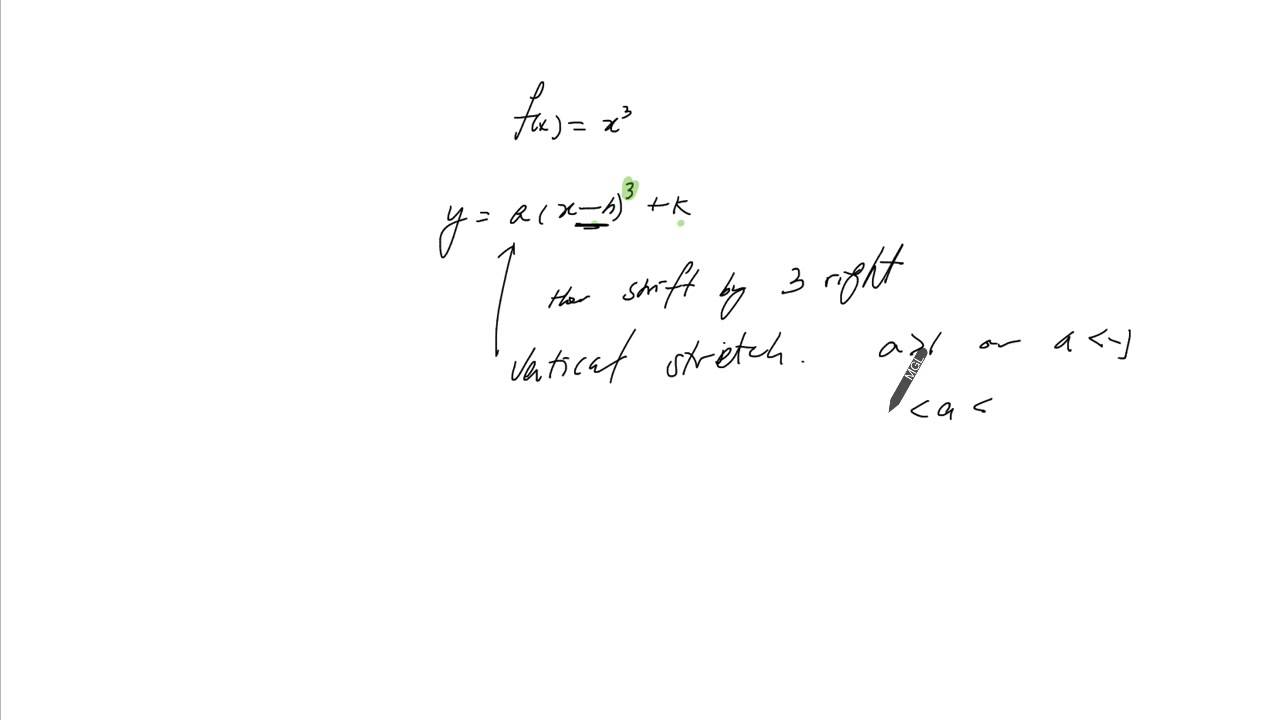 f(x) = x³
y = a(x-h)³ + k
Hor shift by 3 right
Vertical stretch. a>1 or a<-1
<a<
MGL